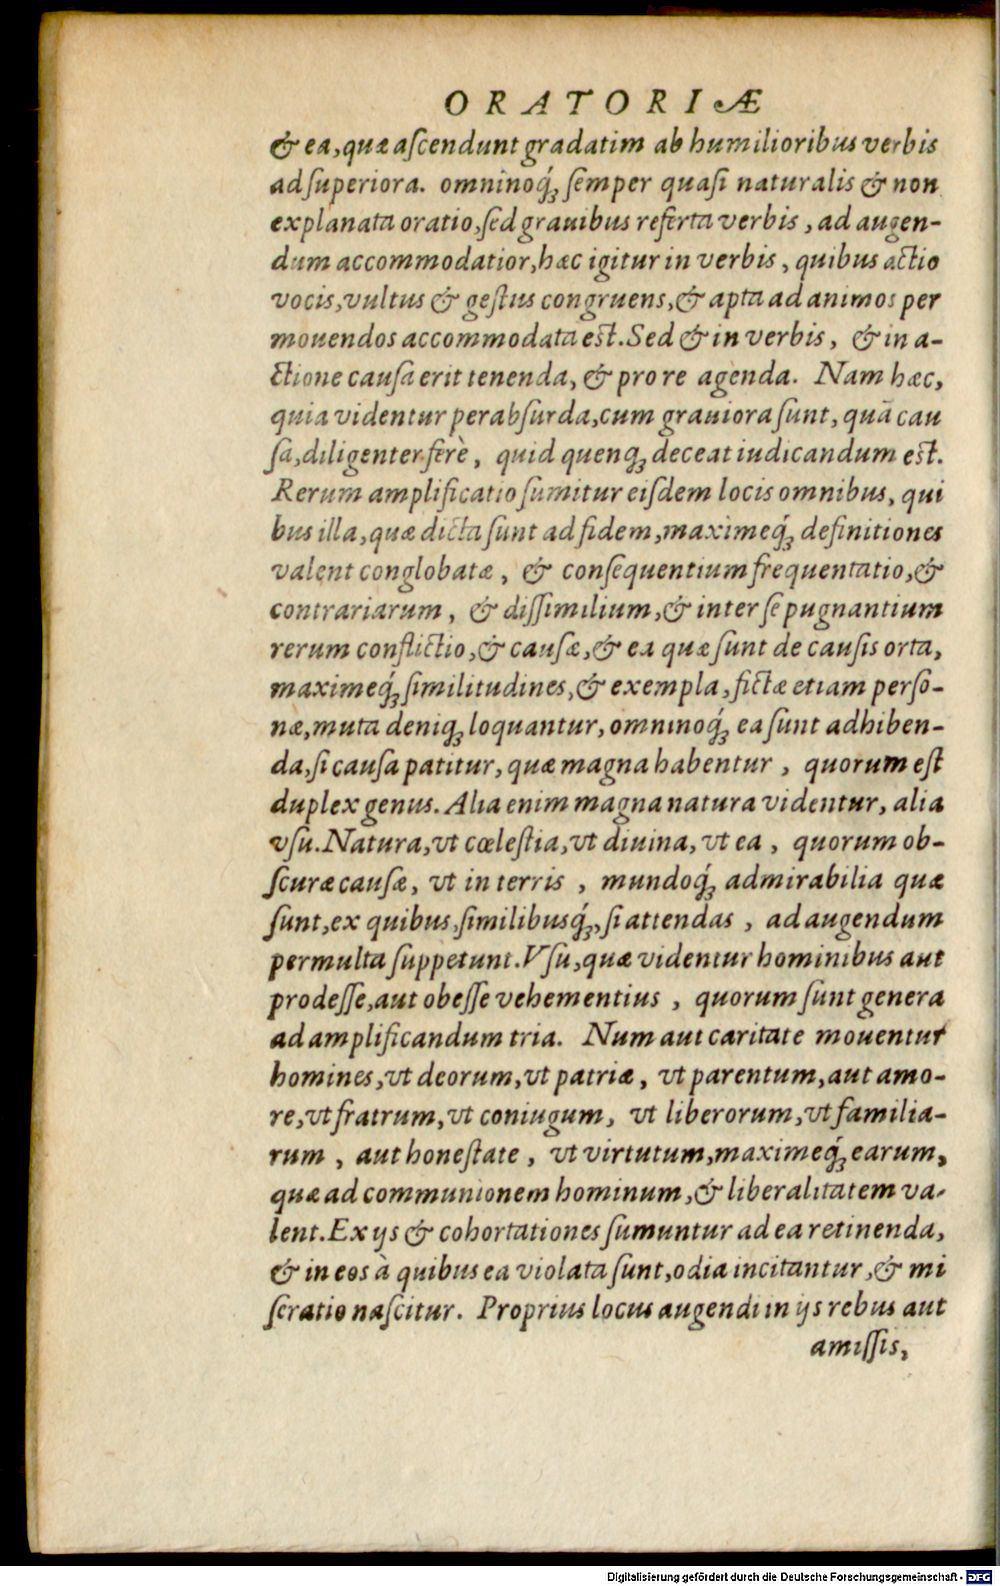 ORATORIÆ
& ea, quæ aſcendunt gradatim ab humilioribus verbis
ad ſuperiora. omninoq́ꝫ ſemper quaſi naturalis & non
explanata oratio, ſed grauibus referta verbis, ad augen-
dum accommodatior, hæc igitur in verbis, quibus actio
vocis, vultus & geſtus congruens, & apta ad animos per
mouendos accommodata est. Sed & in verbis, & in a-
ctione cauſa erit tenenda, & pro re agenda. Nam hæc,
quia videntur perabſurda, cum grauiora ſunt, quā cau
ſa, diligenter ferè, quid quenqꝫ deceat iudicandum est.
Rerum amplificatio ſumitur eiſdem locis omnibus, qui
bus illa, quæ dicta ſunt ad fidem, maximeq́ꝫ definitiones
valent conglobatæ, & conſequentium frequentatio, &
contrariarum, & diſſimilium, & inter ſe pugnantium
rerum conflictio, & cauſæ, & ea quæ ſunt de cauſis orta,
maximeq́ꝫ ſimilitudines, & exempla, fictæ etiam perſo-
næ, muta deniqꝫ loquantur, omninoq́ꝫ ea ſunt adhiben-
da, ſi cauſa patitur, quæ magna habentur, quorum eſt
duplex genus. Alia enim magna natura videntur, alia
vſu. Natura, vt cœleſtia, vt diuina, vt ea, quorum ob-
ſcuræ cauſæ, vt in terris, mundoq́ꝫ admirabilia quæ
ſunt, ex quibus, ſimilibusq́ꝫ, ſi attendas, ad augendum
permulta ſuppetunt. Vſu, quæ videntur hominibus aut
prodeſſe, aut obeſſe vehementius, quorum ſunt genera
ad amplificandum tria. Num aut caritate mouentur
homines, vt deorum, vt patriæ, vt parentum, aut amo-
re, vt fratrum, vt coniugum, vt liberorum, vt familia-
rum, aut honeſtate, vt virtutum, maximeq́ꝫ earum,
quæ ad communionem hominum, & liberalitatem va-
lent. Ex ijs & cohortationes ſumuntur ad ea retinenda,
& in eos à quibus ea violata ſunt, odia incitantur, & mi
ſeratio naſcitur. Proprius locus augendi in ijs rebus aut
amiſſis,
Digitalisierung gefördert durch die Deutsche Forschungsgemeinschaft - DFG